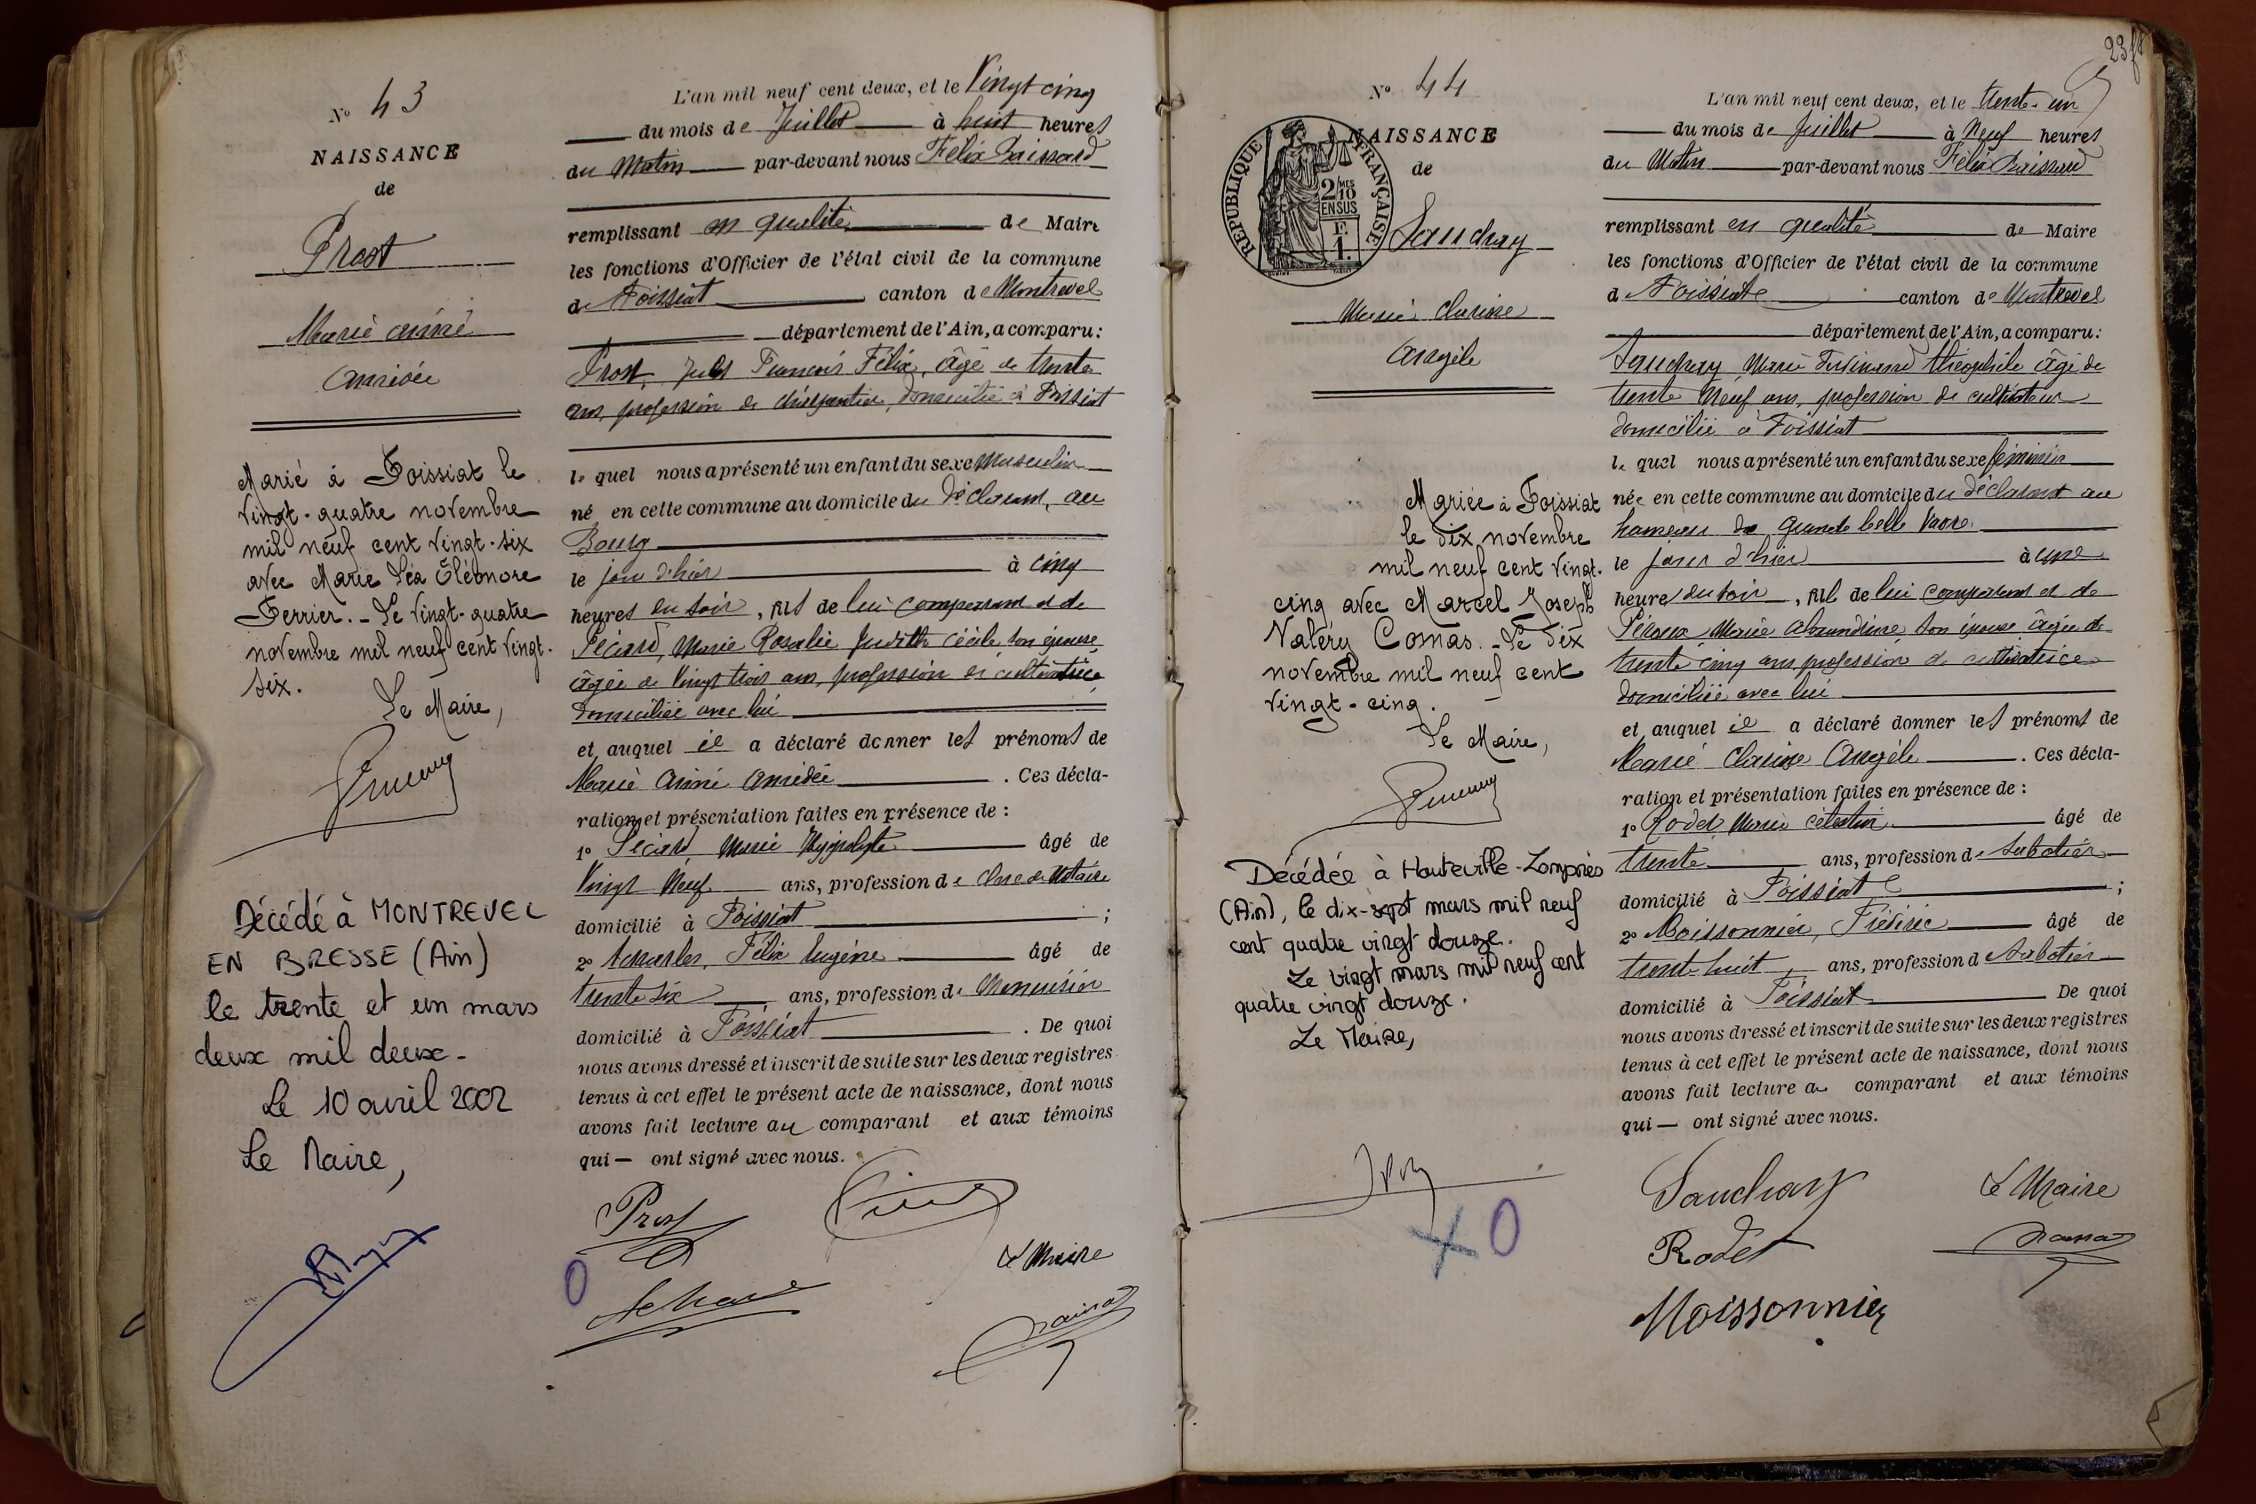 N° 43
NAISSANCE
de
Prost
Marie Aimé
Amédée
Marié à Foissiat le
vingt-quatre novembre
mil neuf cent vingt-six
avec Marie Léa Eléonore
Ferrier. - Le vingt-quatre
novembre mil neuf cent vingt-
six.
Le Maire,
Décédé à MONTREVEL
EN BRESSE (Ain)
le trente et un mars
deux mil deux -
Le 10 avril 2002
Le Maire,
L'an mil neuf cent deux, et le Vingt cinq
du mois de Juillet à huit heures
du Matin par-devant nous Félix
remplissant en qualité de Maire
les fonctions d'Officier de l'état civil de la commune
de Foissiat canton de Montrevel
département de l'Ain, a comparu :
Prost, Jules François Félix, âgé de trente
ans, profession de charpentier, domicilié à Foissiat
lequel nous a présenté un enfant du sexe Masculin
né en cette commune au domicile du déclarant, au
Bourg
le jour d'hier à cinq
heures du soir, fils de lui comparant et de
Marie Rosalie Judith Cécile, son épouse,
âgée de Vingt trois ans, profession de cultivatrice,
domiciliée avec lui
et auquel il a déclaré donner les prénoms de
Marie Aimé Amédée. Ces décla-
ration et présentation faites en présence de :
1° Marie Hyppolyte âgé de
Vingt Neuf ans, profession de clerc de Notaire
domicilié à Foissiat ;
2° Félix Eugène âgé de
trente six ans, profession de Menuisier
domicilié à Foissiat. De quoi
nous avons dressé et inscrit de suite sur les deux registres
tenus à cet effet le présent acte de naissance, dont nous
avons fait lecture au comparant et aux témoins
qui — ont signé avec nous.
Prost
Le Maire
23
N° 44
NAISSANCE
de
RÉPUBLIQUE FRANÇAISE
2 MES
10
EN SUS
1 F.
Sauchay
Marie Clarisse
Angèle
Mariée à Foissiat
le dix novembre
mil neuf cent vingt-
cinq avec Marcel Joseph
Valéry Comas. - Le dix
novembre mil neuf cent
vingt-cinq.
Le Maire,
Décédée à Hauteville-Lompnes
(Ain), le dix-sept mars mil neuf
cent quatre vingt douze.
Le vingt mars mil neuf cent
quatre vingt douze.
Le Maire,
L'an mil neuf cent deux, et le trente-un
du mois de Juillet à Neuf heures
du Matin par-devant nous Félix
remplissant en qualité de Maire
les fonctions d'Officier de l'état civil de la commune
de Foissiat canton de Montrevel
département de l'Ain, a comparu :
Sauchay Marie Ferdinand Théophile âgé de
trente Neuf ans, profession de cultivateur
domicilié à Foissiat
lequel nous a présenté un enfant du sexe féminin
née en cette commune au domicile du déclarant au
hameau de Grande belle
le jour d'hier à une
heure du soir, fille de lui comparant et de
Marie son épouse âgée de
trente cinq ans, profession de cultivatrice
domiciliée avec lui
et auquel il a déclaré donner les prénoms de
Marie Clarisse Angèle. Ces décla-
ration et présentation faites en présence de :
1° Rodet, Marie Célestin âgé de
trente ans, profession de Sabotier
domicilié à Foissiat ;
2° Moissonnier, Frédéric âgé de
trente huit ans, profession de Sabotier
domicilié à Foissiat. De quoi
nous avons dressé et inscrit de suite sur les deux registres
tenus à cet effet le présent acte de naissance, dont nous
avons fait lecture au comparant et aux témoins
qui — ont signé avec nous.
Sauchay
Le Maire
Rodet
Moissonnier